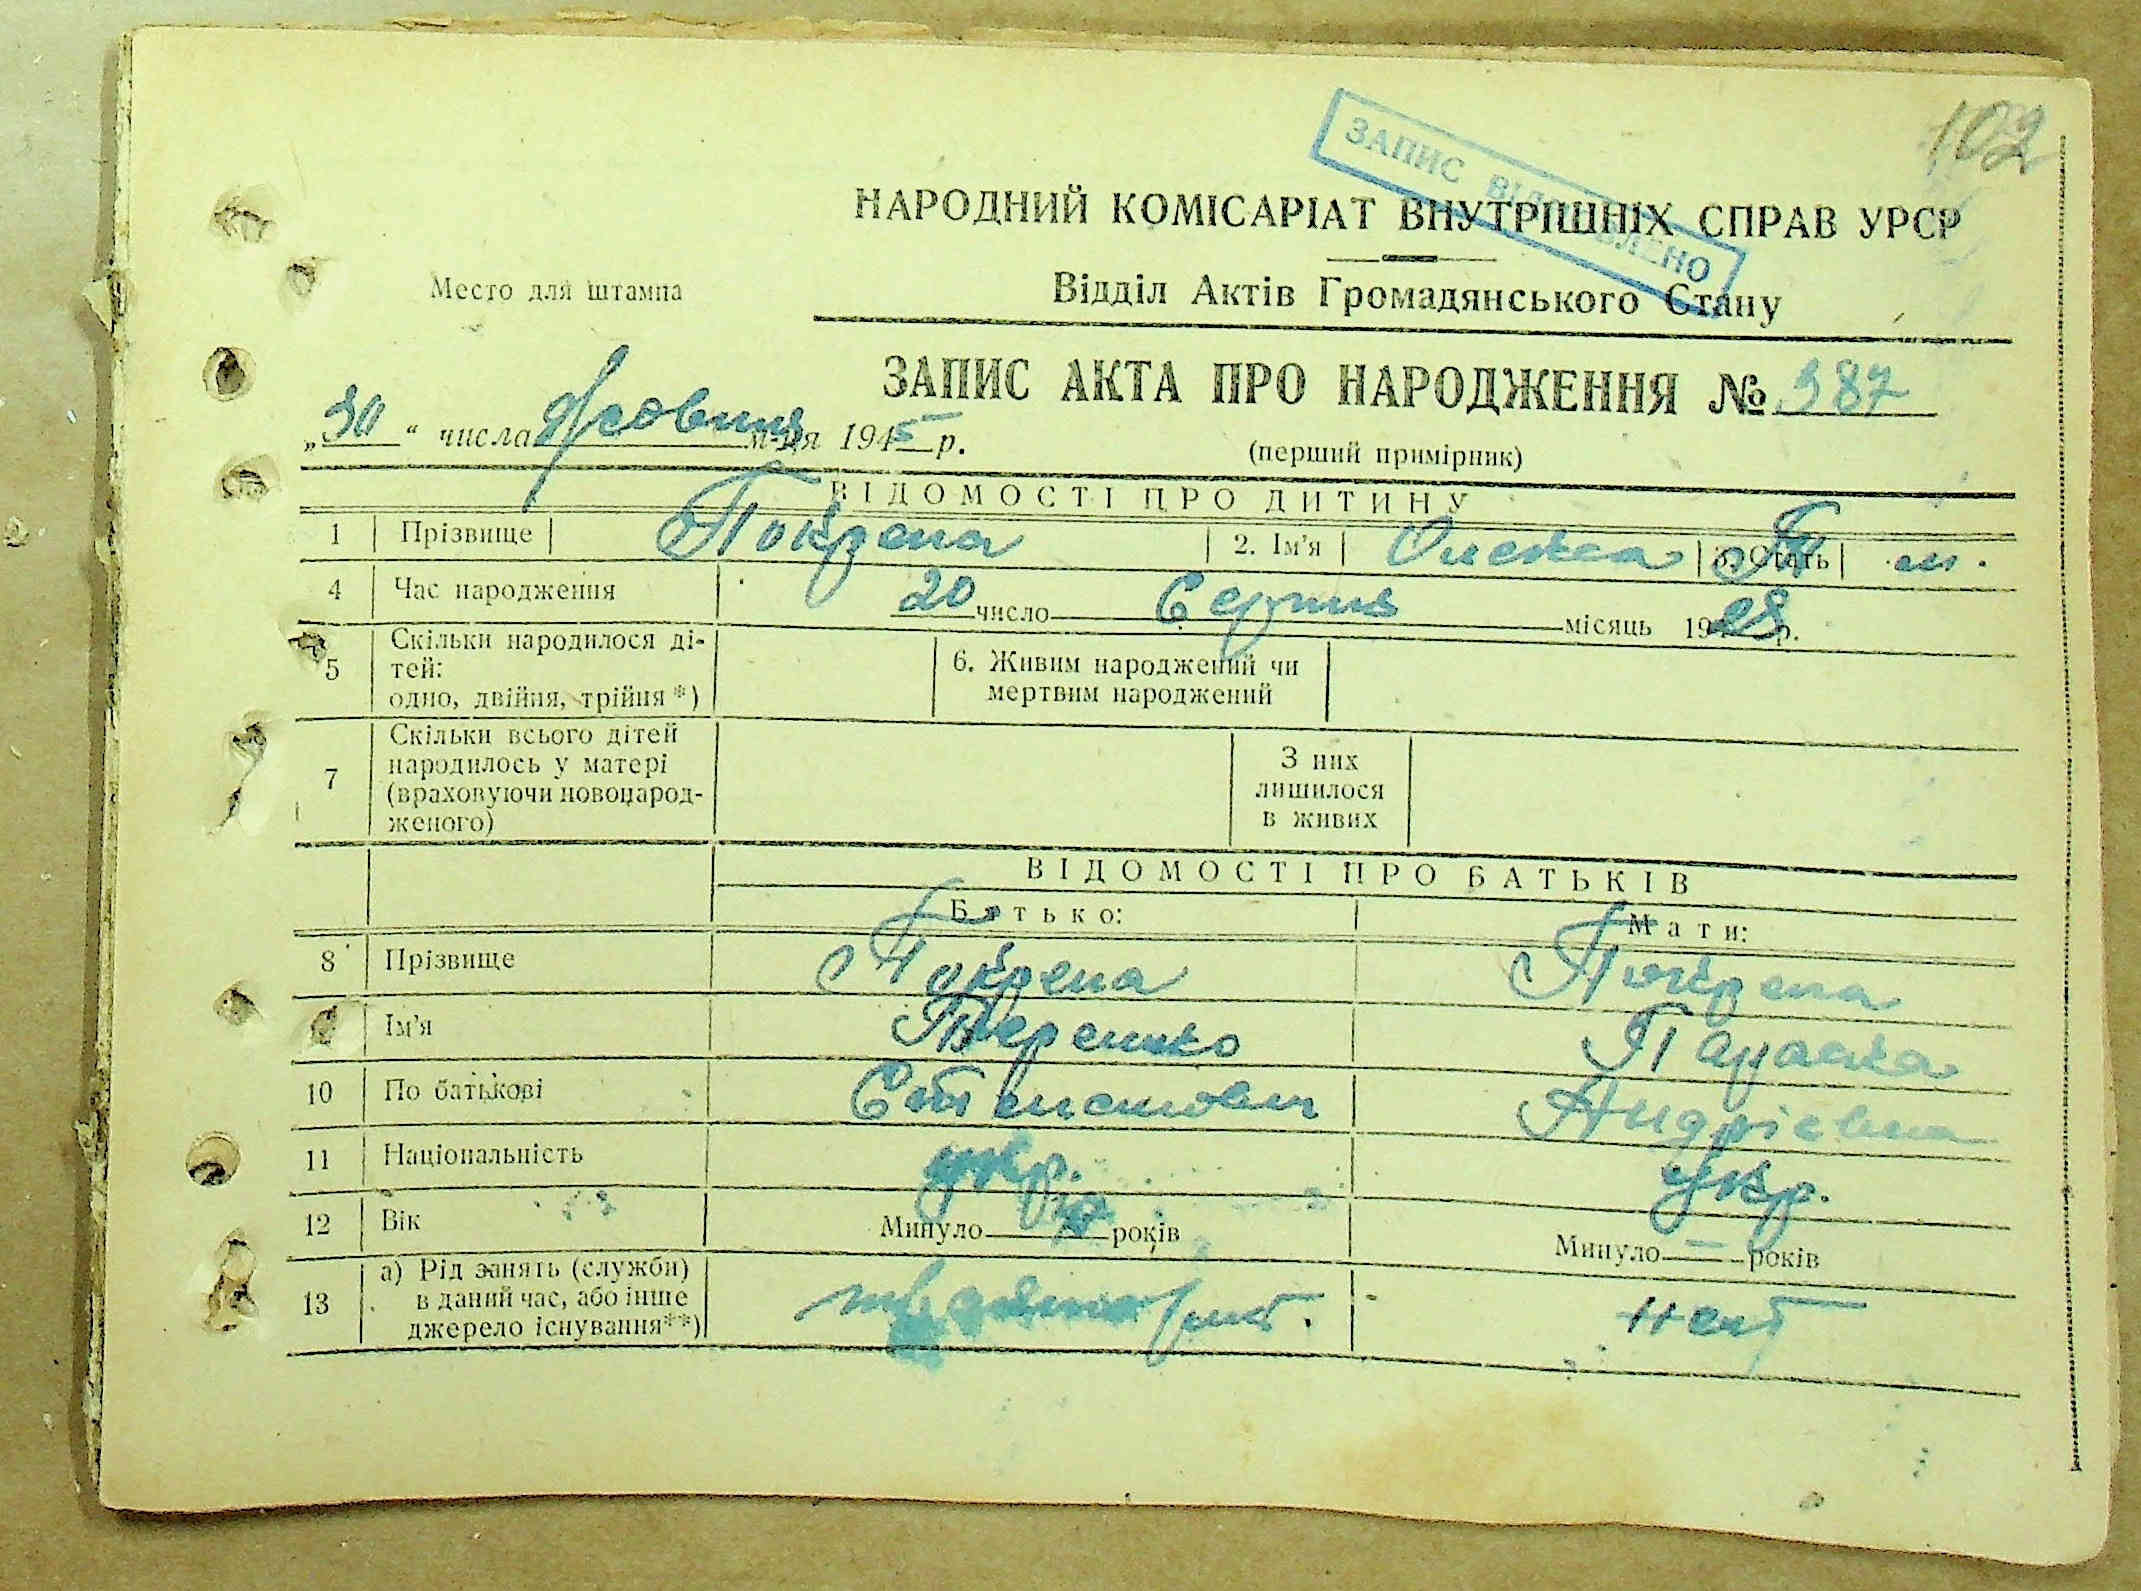 102
ЗАПИС ВІДНОВЛЕНО
НАРОДНИЙ КОМІСАРІАТ ВНУТРІШНІХ СПРАВ УРСР
Место для штампа
Відділ Актів Громадянського Стану
ЗАПИС АКТА ПРО НАРОДЖЕННЯ № 387
„30“ числа Жовтня м-ця 1945 р.
(перший примірник)
ВІДОМОСТІ ПРО ДИТИНУ
1 Прізвище Покрепа 2. Ім'я 3. Стать
4 Час народження 20 число Серпня місяць 1928 р.
5 Скільки народилося ді-
тей:
одно, двійня, трійня *)
6. Живим народжений чи
мертвим народжений
7 Скільки всього дітей
народилось у матері
(враховуючи новонарод-
женого)
З них
лишилося
в живих
ВІДОМОСТІ ПРО БАТЬКІВ
Батько: Мати:
8 Прізвище Покрепа Покрепа
Ім'я Терешко Параска
10 По батькові Степанович Андріевна
11 Національність укр. укр.
12 Вік Минуло років Минуло — років
13 а) Рід занять (служби)
в даний час, або інше
джерело існування**)
нет